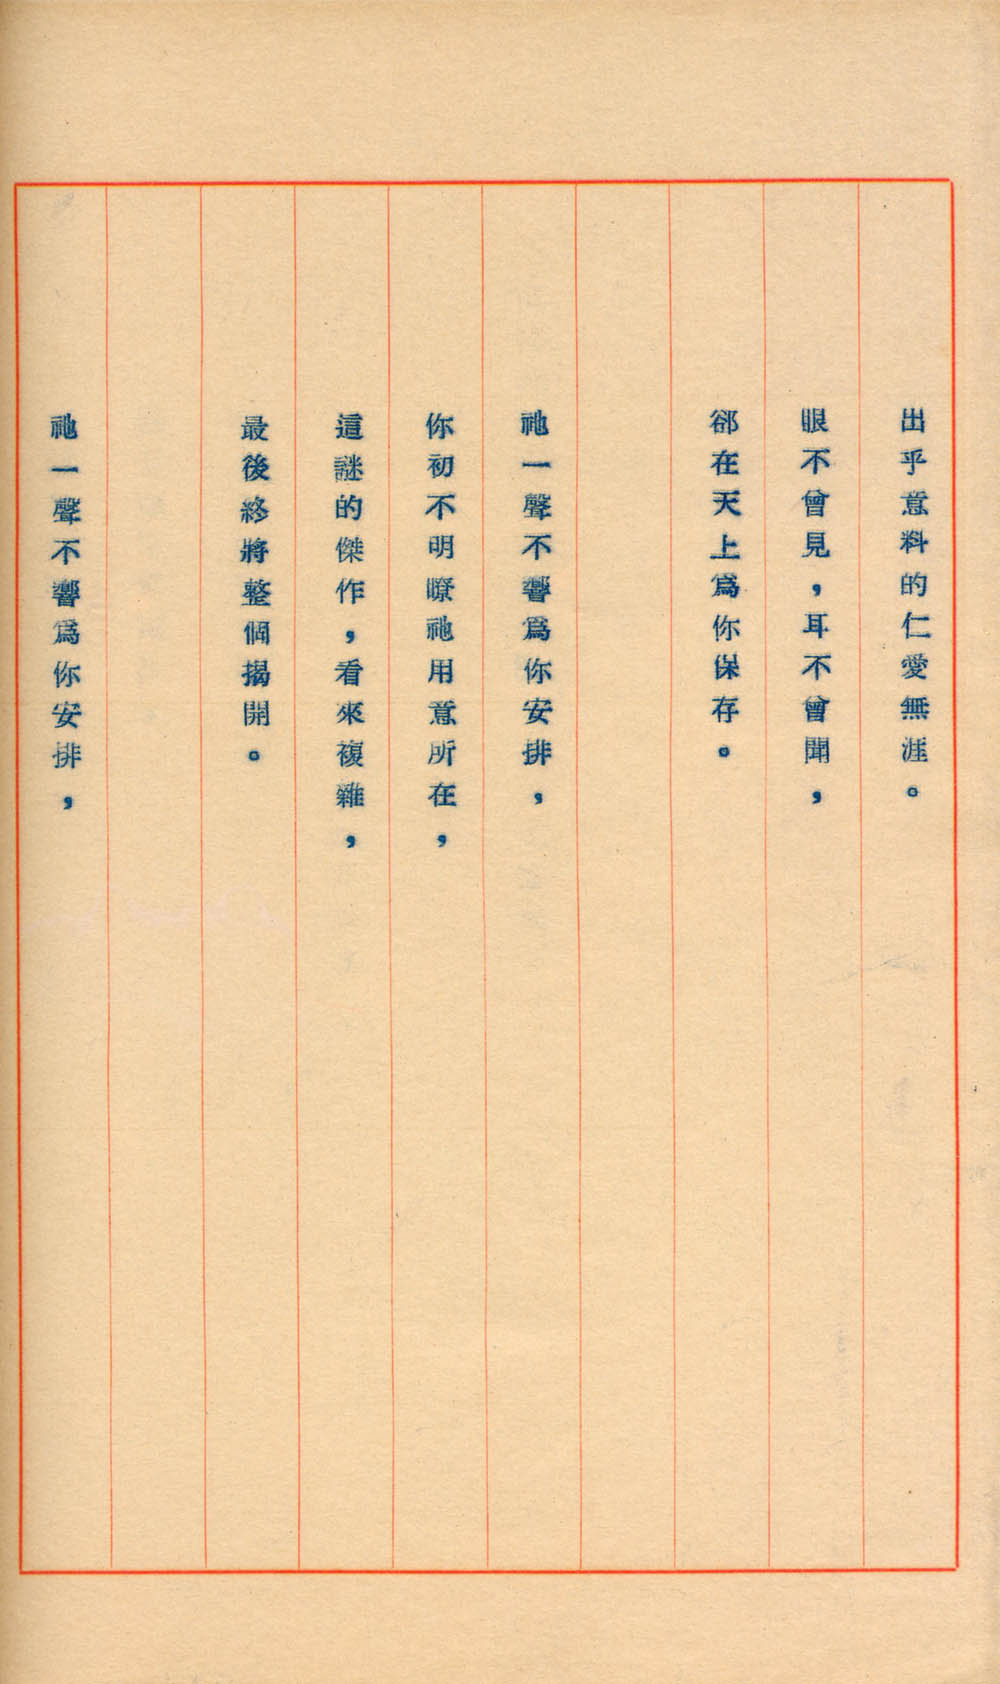 出乎意料的仁愛無涯。
眼不曾見，耳不曾聞，
郤在天上爲你保存。
祂一聲不響爲你安排，
你初不明瞭祂用意所在，
這謎的傑作，看來複雜，
最後終將整個揭開。
祂一聲不響爲你安排，